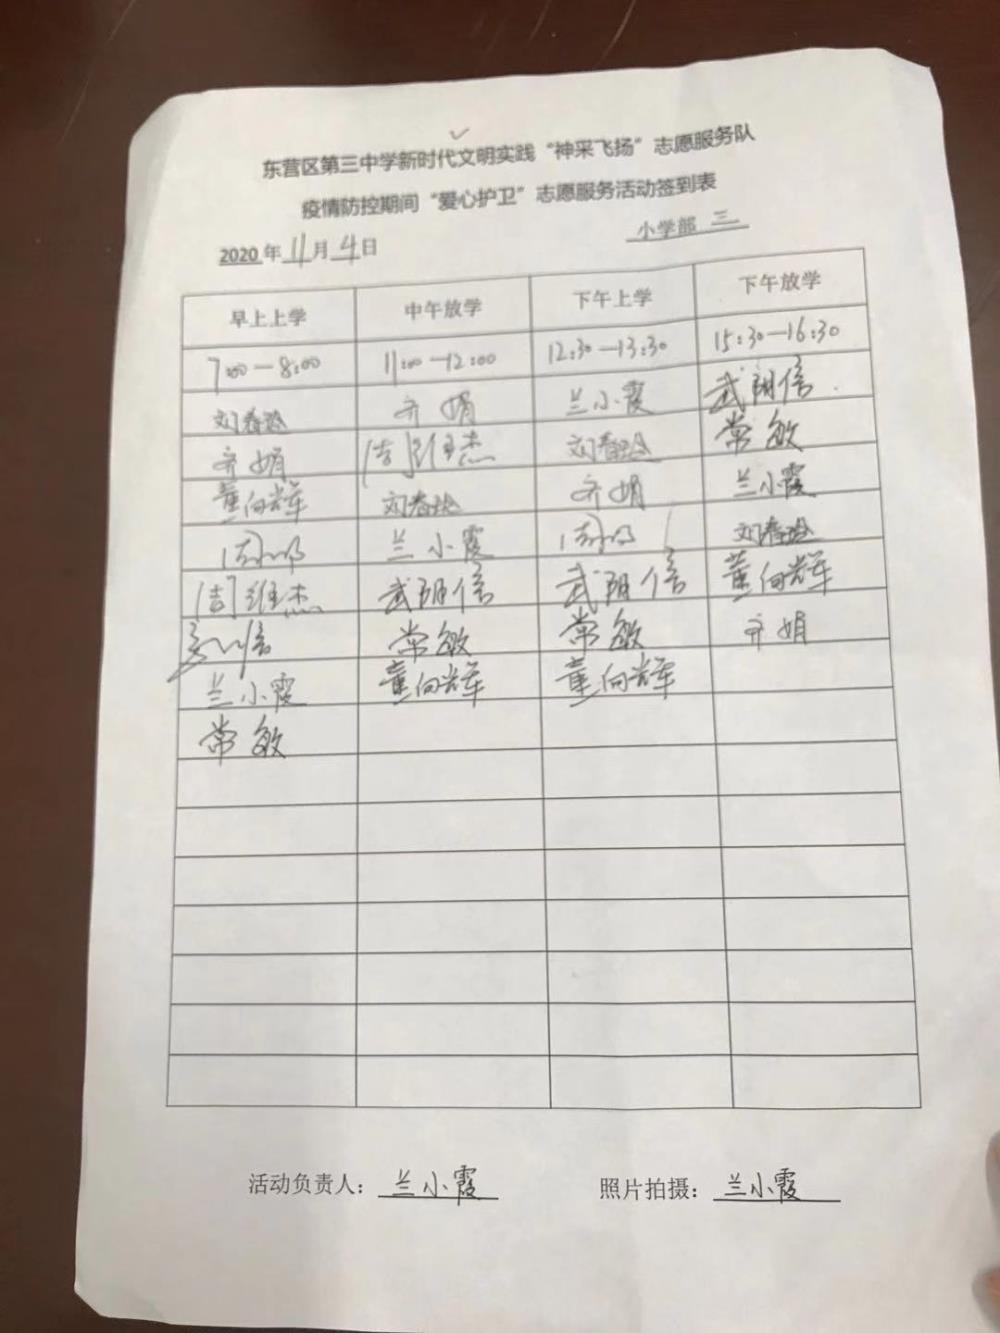 东营区第三中学新时代文明实践“神采飞扬”志愿服务队
疫情防控期间“爱心护卫”志愿服务活动签到表
2020年11月4日 小学部 三
早上上学 中午放学 下午上学 下午放学
7:00—8:00 11:00—12:00 12:30—13:30 15:30—16:30
刘春玲 齐娟 兰小霞 武阴信
齐娟 周维杰 刘春玲 常敏
董向辉 刘春玲 齐娟 兰小霞
兰小霞 刘春玲
周维杰 武阴信 武阴信 董向辉
常敏 常敏 齐娟
兰小霞 董向辉 董向辉
常敏
活动负责人：兰小霞 照片拍摄：兰小霞